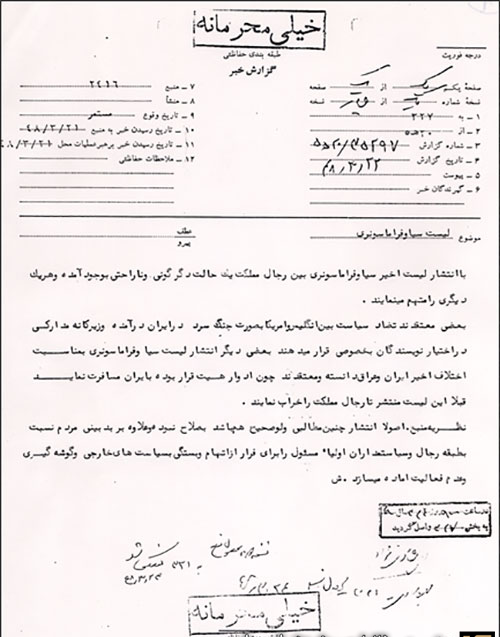 خیلی محرمانه
طبقه بندی حفاظتی
گزارش خبر
درجه فوریت
صفحه یک از یک صفحه
نسخه شماره از نسخه
۱ - به ۳۲۷
۲ - از ۵۲۰
۳ - شماره گزارش
۴ - تاریخ گزارش ۴۸/۳/۲۲
۵ - پیوست
۶ - گیرندگان خبر
۷ - منبع ۲۴۱۶
۸ - منشأ
۹ - تاریخ وقوع مستمر
۱۰ - تاریخ رسیدن خبر به منبع ۴۸/۳/۲۱
۱۱ - تاریخ رسیدن خبر برهبر عملیات محل ۴۸/۳/۲۱
۱۲ - ملاحظات حفاظتی
موضوع لیست سیا و فراماسونری
عطف
پیرو
با انتشار لیست اخیر سیا و فراماسونری بین رجال مملکت یک حالت دگرگونی و ناراحتی بوجود آمده و هریک
دیگری را متهم مینمایند .
بعضی معتقدند تضاد سیاست بین انگلیس و امریکا بصورت جنگ سرد در ایران درآمده و زیرکانه مدارکی
در اختیار نویسندگان بخصوصی قرار میدهند بعضی دیگر انتشار لیست سیا و فراماسونری بمناسبت
اختلاف اخیر ایران و عراق دانسته و معتقدند چون ادوارد هیت قرار بوده بایران مسافرت نماید
قبلا این لیست منتشر تا رجال مملکت را خراب نمایند .
نظریه منبع. اصولا انتشار چنین مطالبی ولو صحیح هم باشد بصلاح نبوده و علاوه بر بدبینی مردم نسبت
بطبقه رجال و سیاستمداران اولیاء مسئول را برای فرار از اتهام وبستگی بسیاست های خارجی وگوشه گیری
وعدم فعالیت اماده میسازد . ش
خیلی محرمانه